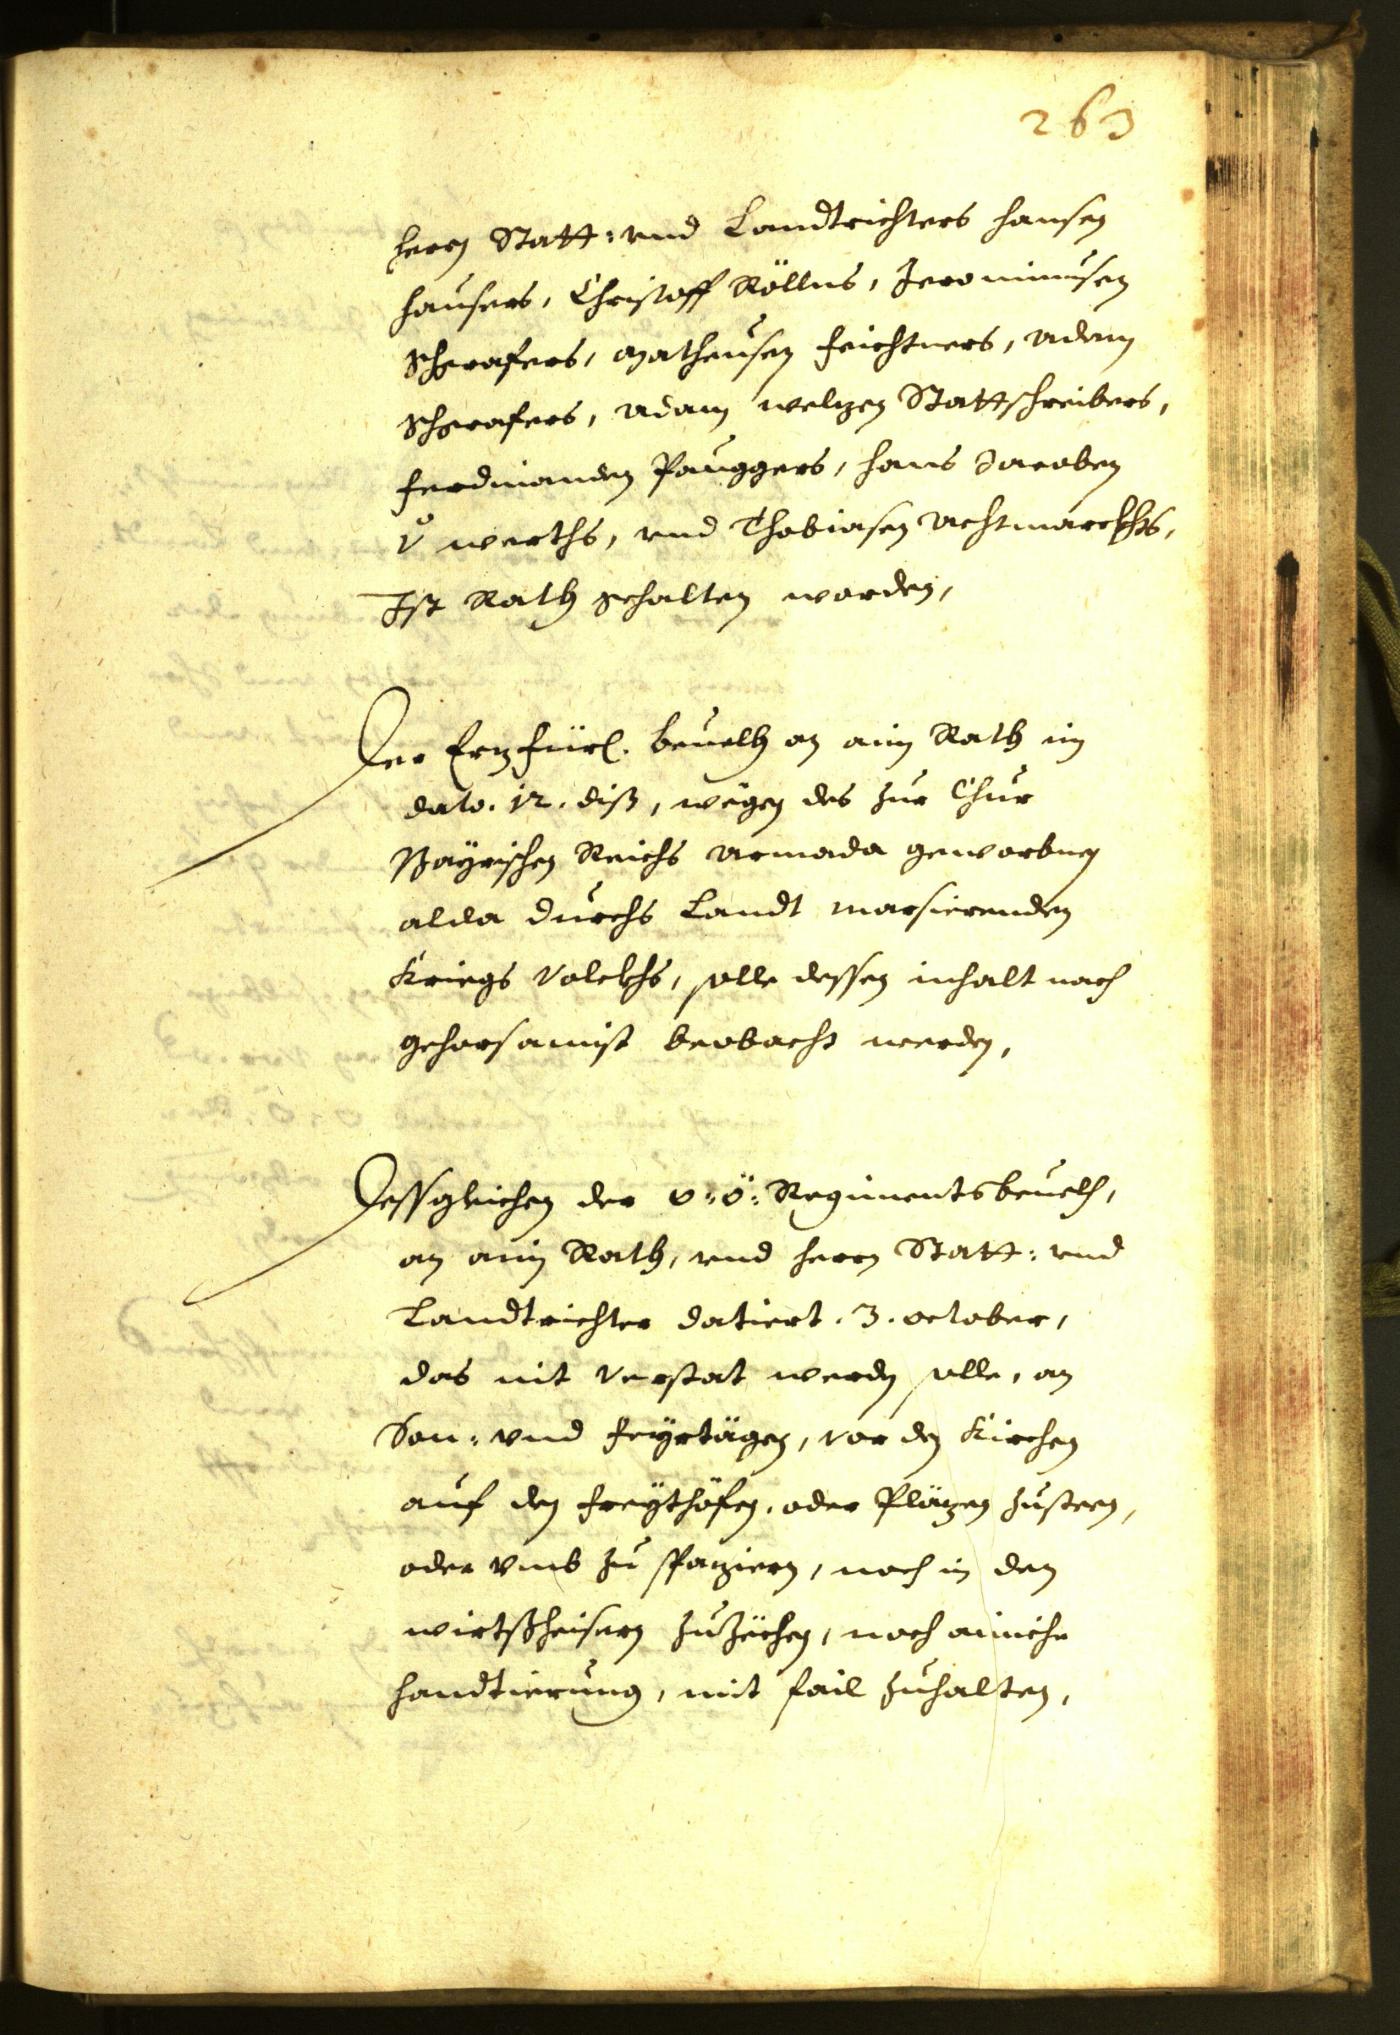 263
Herrn Statt: vnd Landtrichters Hansen
Hausers, Christoff Röllns, Jeronimusen
Schgrafers, Matheusen Feichtners, Adam
Schgrafers, Adam Welzen Stattschreibers,
Ferdinanden Paugggers, Hans Jacoben
V̊ werths, vnd Thobiasen Achtmarckhts,
Ist Rath gehalten worden,
Der Erzfürl. beuelh an ain Rath im
dato. 12. diß, wegen des zur Chur
Bayrischen Reichs Armada geworbnen
alda durchs Landt marsierenden
Kriegs Volckhs, solle dessen inhalt nach
gehorsamist beobacht werden,
Dessgleichen der O: Ö: Regiments beuelh,
an ain Rath, vnd Herrn Statt: vnd
Landtrichter datiert. 3. october,
das nit verstat werden solle, an
Son: vnd Feyrtägen, vor den Kirchen
auf den Freythöfen, oder Pläzen zusteen,
oder vmb zu spaziern, noch in den
wirtßheisern zuzechen, noch ainiche
Handtierung, mit fail zuhalten,